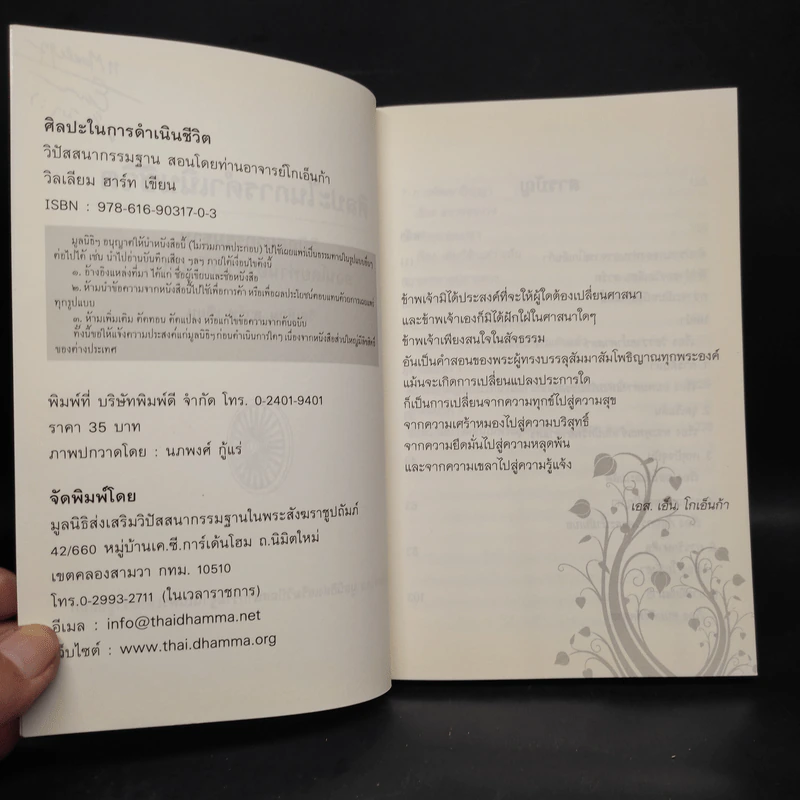 ศิลปะในการดำเนินชีวิต
วิปัสสนากรรมฐาน สอนโดยท่านอาจารย์โกเอ็นก้า
วิลเลียม ฮาร์ท เขียน
ISBN : 978-616-90317-0-3
มูลนิธิฯ อนุญาตให้นำหนังสือนี้ (ไม่รวมภาพประกอบ) ไปใช้เผยแพร่เป็นธรรมทานในรูปแบบอื่นๆ
ต่อไปได้ เช่น นำไปอ่านบันทึกเสียง ฯลฯ ภายใต้เงื่อนไขดังนี้
๑. อ้างอิงแหล่งที่มา ได้แก่ ชื่อผู้เขียนและชื่อหนังสือ
๒. ห้ามนำข้อความจากหนังสือนี้ไปใช้เพื่อการค้า หรือเพื่อผลประโยชน์ตอบแทนด้วยการเผยแพร่
ทุกรูปแบบ
๓. ห้ามเพิ่มเติม ตัดทอน ดัดแปลง หรือแก้ไขข้อความจากต้นฉบับ
ทั้งนี้ขอให้แจ้งความประสงค์แก่มูลนิธิฯ ก่อนดำเนินการใดๆ เนื่องจากหนังสือส่วนใหญ่มีลิขสิทธิ์
ของต่างประเทศ
พิมพ์ที่ บริษัทพิมพ์ดี จำกัด โทร. 0-2401-9401
ราคา 35 บาท
ภาพปกวาดโดย : นภพงศ์ กู้แร่
จัดพิมพ์โดย
มูลนิธิส่งเสริมวิปัสสนากรรมฐานในพระสังฆราชูปถัมภ์
42/660 หมู่บ้านเค.ซี.การ์เด้นโฮม ถ.นิมิตใหม่
เขตคลองสามวา กทม. 10510
โทร.0-2993-2711 (ในเวลาราชการ)
อีเมล : info@thaidhamma.net
เว็บไซต์ : www.thai.dhamma.org
ข้าพเจ้ามิได้ประสงค์ที่จะให้ผู้ใดต้องเปลี่ยนศาสนา
และข้าพเจ้าเองก็มิได้ฝักใฝ่ในศาสนาใดๆ
ข้าพเจ้าเพียงสนใจในสัจธรรม
อันเป็นคำสอนของพระผู้ทรงบรรลุสัมมาสัมโพธิญาณทุกพระองค์
แม้นจะเกิดการเปลี่ยนแปลงประการใด
ก็เป็นการเปลี่ยนจากความทุกข์ไปสู่ความสุข
จากความเศร้าหมองไปสู่ความบริสุทธิ์
จากความยึดมั่นไปสู่ความหลุดพ้น
และจากความเขลาไปสู่ความรู้แจ้ง
เอส. เอ็น. โกเอ็นก้า